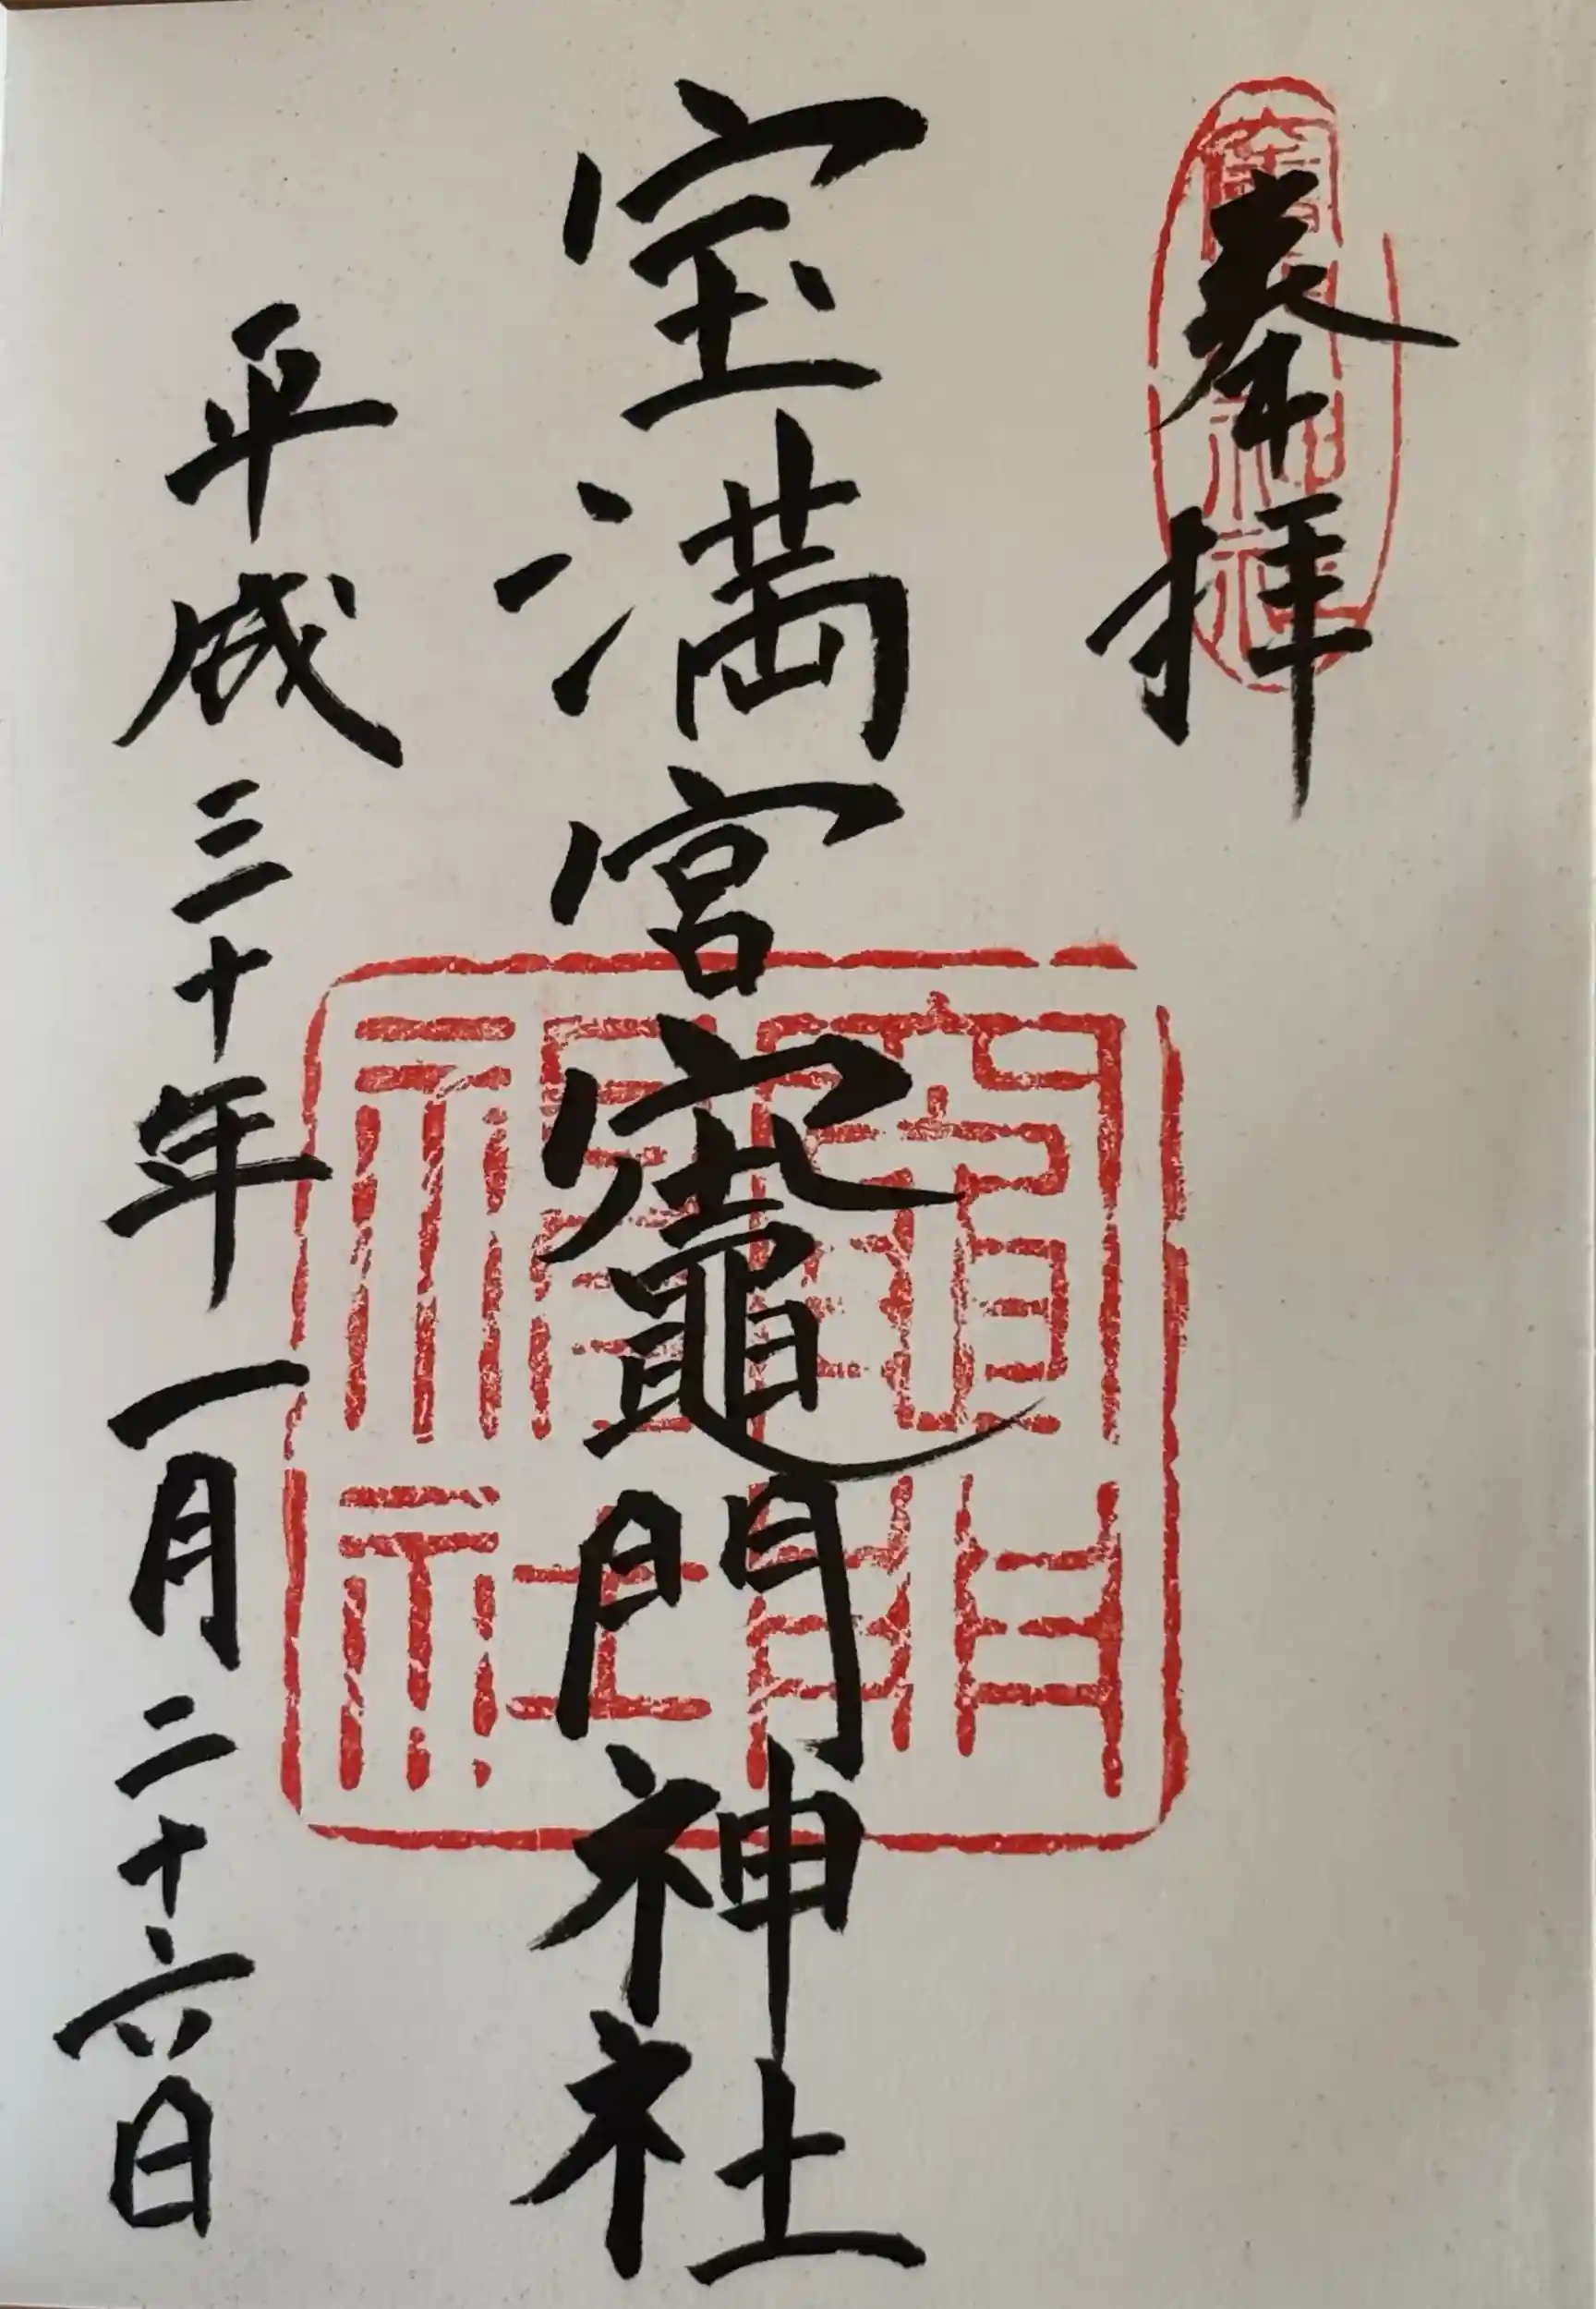 奉拝
宝満宮竈門神社
平成三十年一月二十六日
竈門神社